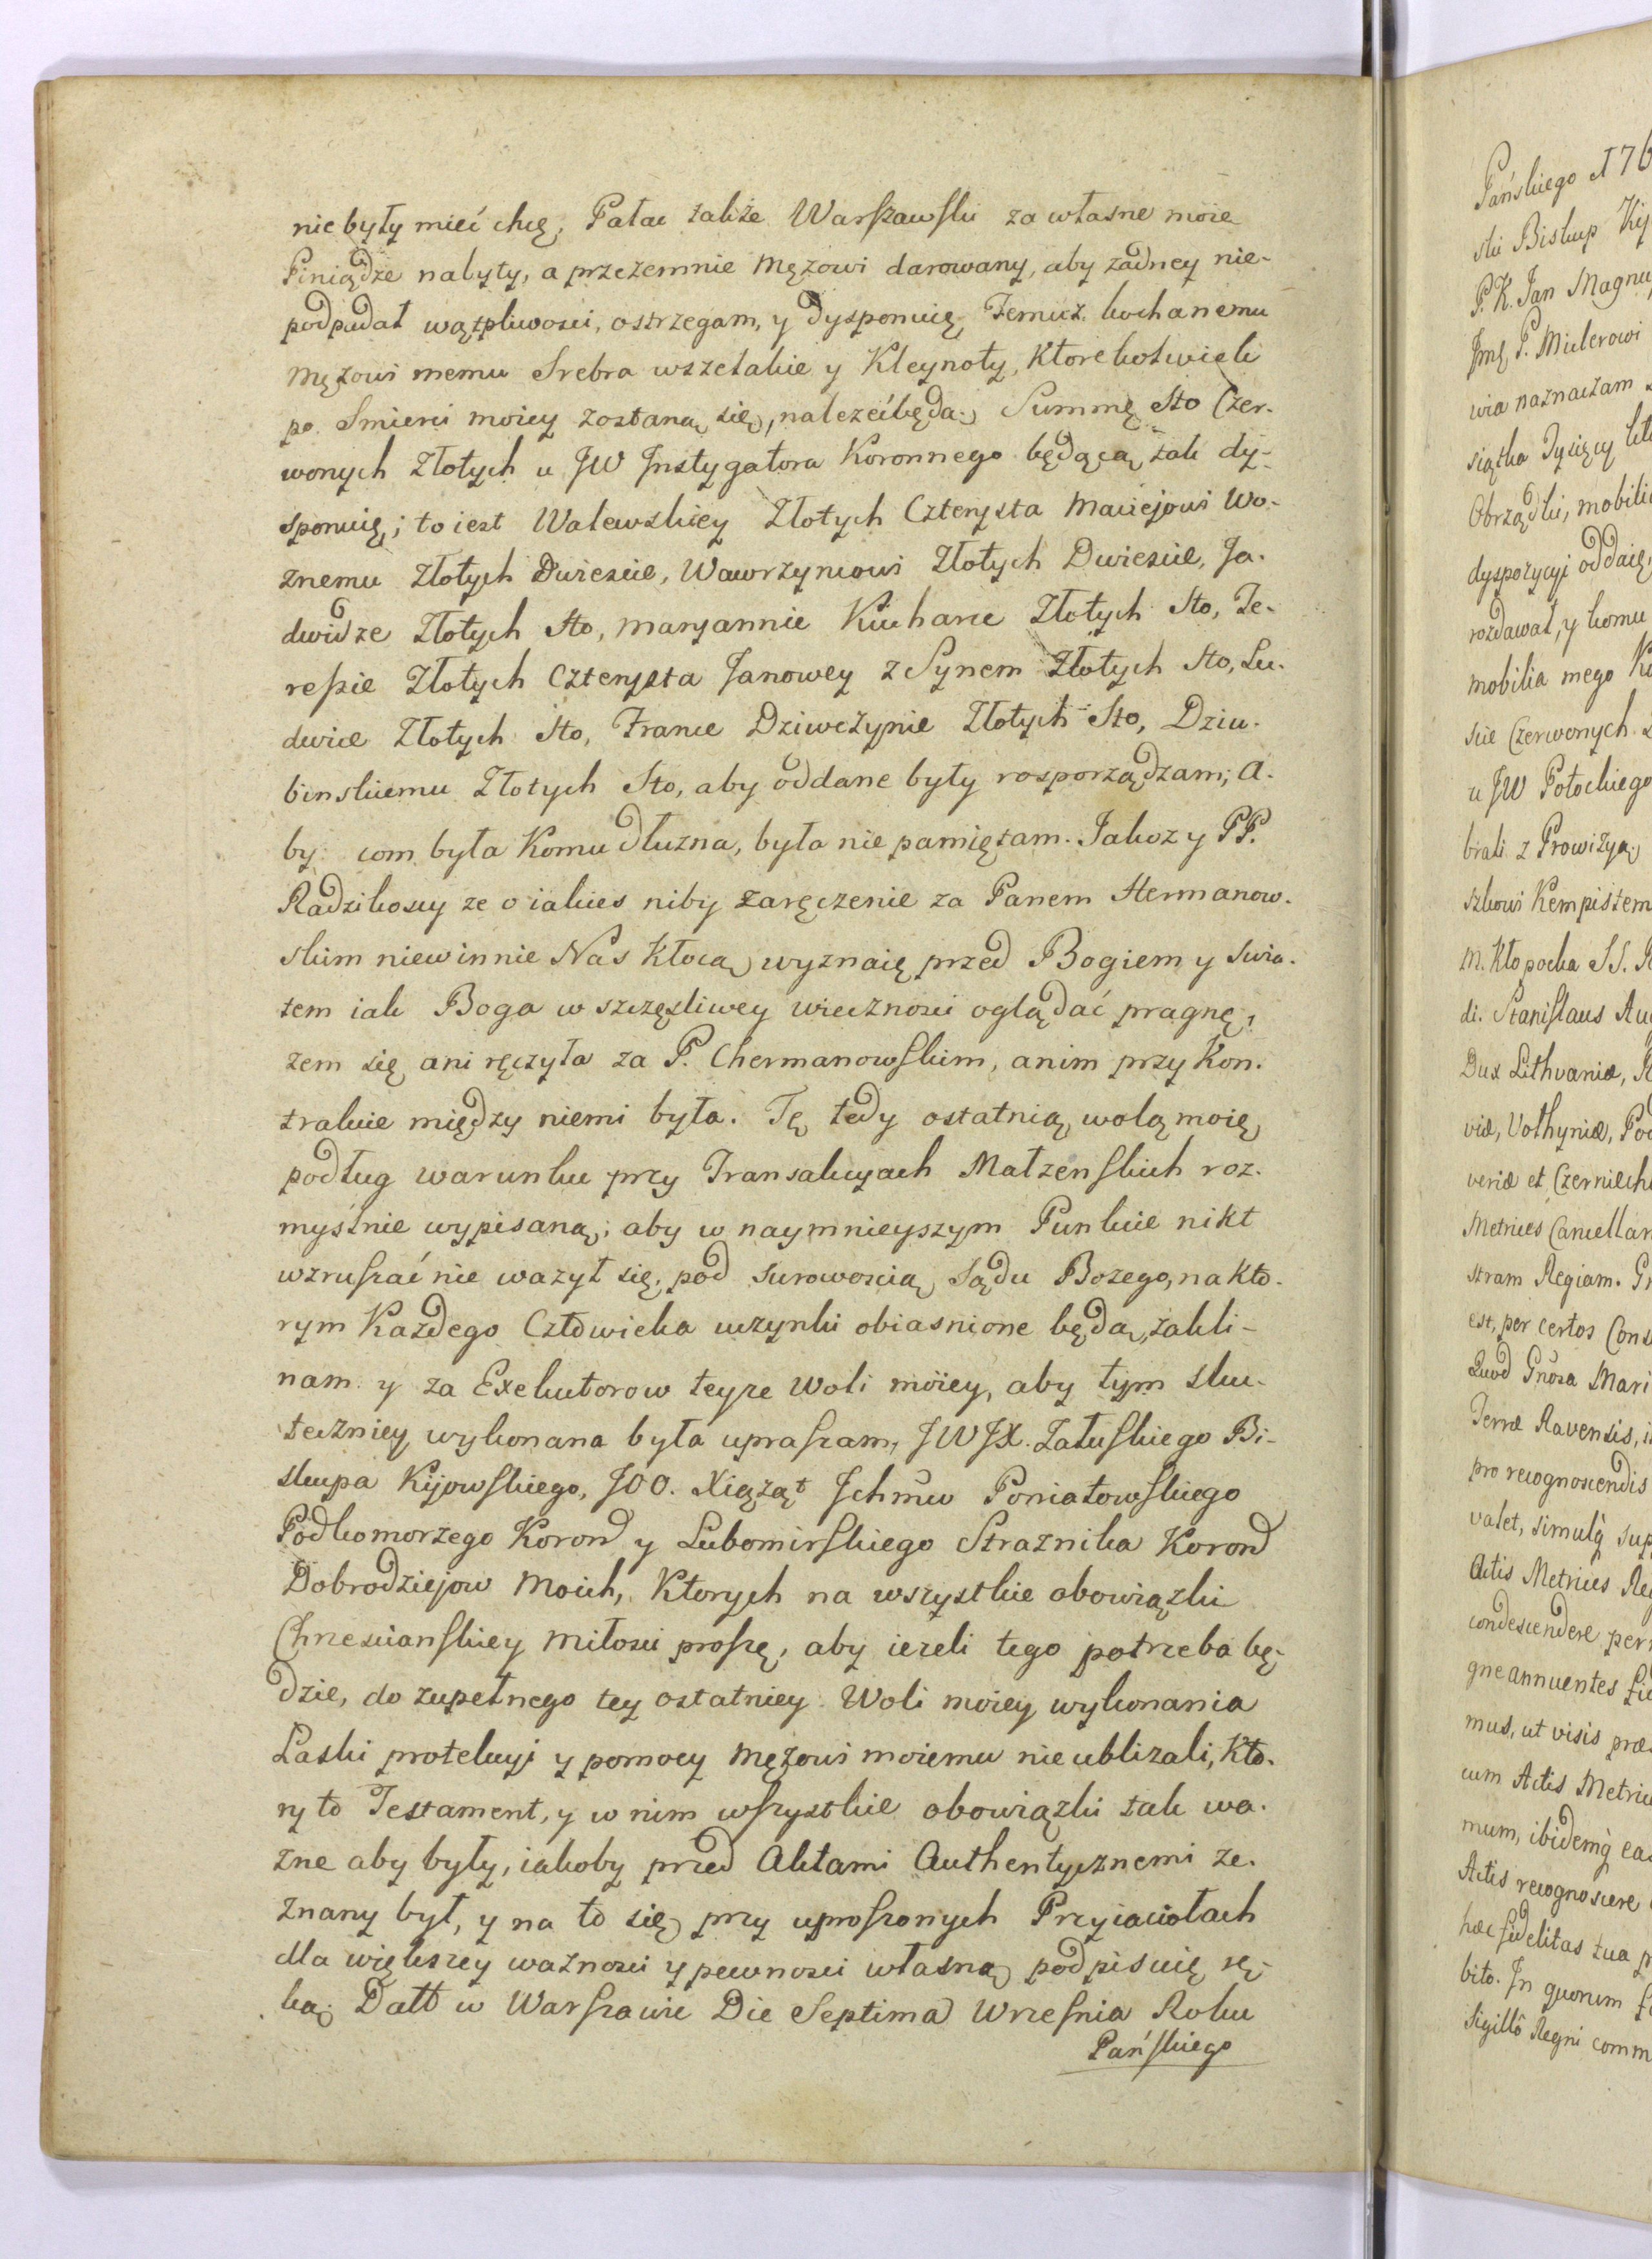 nie były mieć chcę, Pałac także Warszawski za własne moie
Piniądze nabyty, a przezemnie Męzowi darowany, aby zadney nie-
podpadał wątpliwosci, ostrzegam, y dysponuię, Temuz kochanemu
Męzowi memu Srebra wszelakie y Kleynoty, ktorekolwiek
po Smierci moiey zostaną się, nalezeć będą. Summę Sto Czer-
wonych Złotych u JW Jnstygatora Koronnego będącą tak dy-
sponuię; to iest Walewskiey Złotych Czterysta Maciejowi Wo-
znemu Złotych Dwiescie, Wawrzyncowi Złotych Dwiescie, Ja-
dwidze Złotych Sto, Maryannie Kucharce Złotych Sto, Te-
resie Złotych Czterysta Janowey z Synem Złotych Sto, Lu-
dwice Złotych Sto, France Dziewczynie Złotych Sto, Dziu-
binskiemu Złotych Sto, aby oddane były rosporządzam; A-
by com była Komu dłuzna, była nie pamiętam. Jakoz y PP.
Radzikoscy ze o iakies niby zaręczenie za Panem Hermanow-
skim niewinnie Nas kłocą, wyznaię przed Bogiem y Swia-
tem iak Boga w szczęsliwey wiecznosci oglądać pragnę,
zem się ani ręczyła za P. Chermanowskim, anim przy Kon-
trakcie między niemi była. Tę tedy ostatnią wolą moię,
podług warunku przy Transakcyach Małzenskich roz-
myślnie wypisaną; aby w naymnieyszym Punkcie nikt
wzruszać nie wazył się, pod surowoscią Sądu Bozego, na kto-
rym Kazdego Człowieka uczynki obiasnione będą, zakli-
nam y za Exekutorow teyze Woli moiey, aby tym sku-
teczniey wykonana była upraszam, JWJX. Załuskiego Bi-
skupa Kijowskiego, JOO. Xiążąt Jchmw Poniatowskiego
Podkomorzego Koron y Lubomirskiego Straznika Koron
Dobrodziejow Moich, Ktorych na wszystkie obowiązki
Chrzescianskiey Miłosci proszę, aby iezeli tego potrzeba bę-
dzie, do zupełnego tey ostatniey Woli moiey wykonania
Laski protekcyi y pomocy Męzowi moiemu nie ublizali, kto-
ry to Testament, y w nim wszystkie obowiązki tak wa-
zne aby były, iakoby przed Aktami Authentycznemi ze-
znany był, y na to się przy uproszonych Przyiaciołach
dla większey waznosci y pewnosci własną podpisuię rę-
ką. Datt w Warszawie Die Septima Wrzesnia Roku
Pańskiego
Pańskiego 176
ski Biskup Kij
P.K. Jan Magnu
Jmę P. Mulerowi
wia naznaczam
siątka Tysięcy
Obrządki, mobili
dyspozycyi oddaię
rozdawał, y komu
mobilia mego
scie Czerwonych
u JW Potockiego
brali z Prowizyą
szkowi Kempistem
M. Kłopocka SS.
di. Stanislaus Au
Dux Lithvaniæ,
viæ, Volhyniæ, Pod
veriæ et Czerniech
Metrices Cancellar
stram Regiam.
est, per certos Cons
Quod Gnosa Mari
Terræ Ravensis, i
pro recognoscendis
valet, simulq sup
Actis Metrices Re
condescendere per
gne annuentes
mus, ut visis præ
cum Actis Metric
mum, ibidemq ea
Actis recognoscere
hæc fidelitas tua
bito. Jn quorum
Sigillô Regni comm